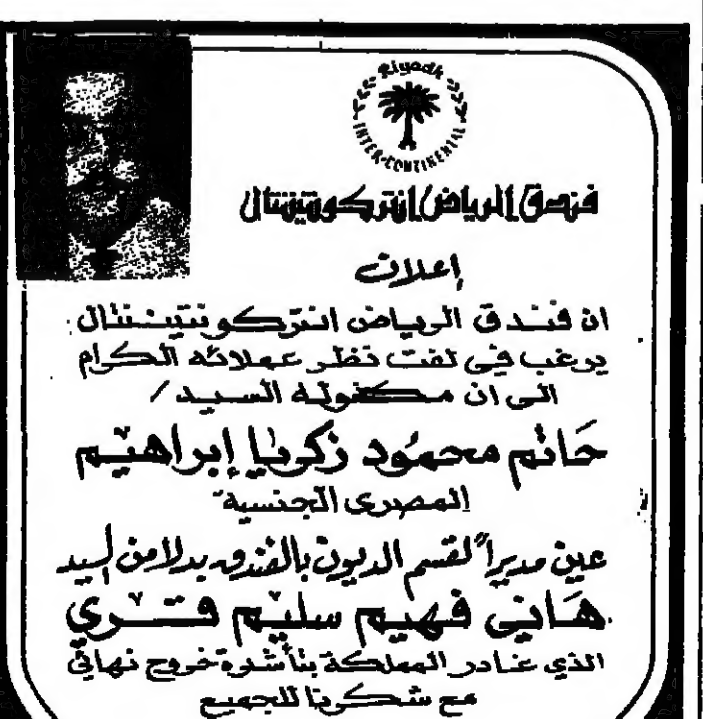 Riyadh
INTER-CONTINENTAL
فندق الرياض انتركونتيننتال
إعلان
ان فندق الرياض انتركونتيننتال
يرغب في لفت نظر عملائه الكرام
الى ان مكفوله السيد /
حَاتم محمُود زكريا إبراهيم
المصرى الجنسية
عين مديراً لقسم الديون بالفندق بدلا من السيد
هَاني فهيم سليم قتري
الذي غادر المملكة بتأشيرة خروج نهائي
مع شكرنا للجميع